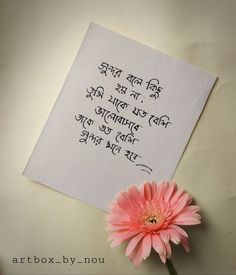 সুন্দর বলে কিছু
হয় না,
তুমি যাকে যত বেশি
ভালোবাসবে
তাকে তত বেশি
সুন্দর মনে হবে
artbox_by_nou